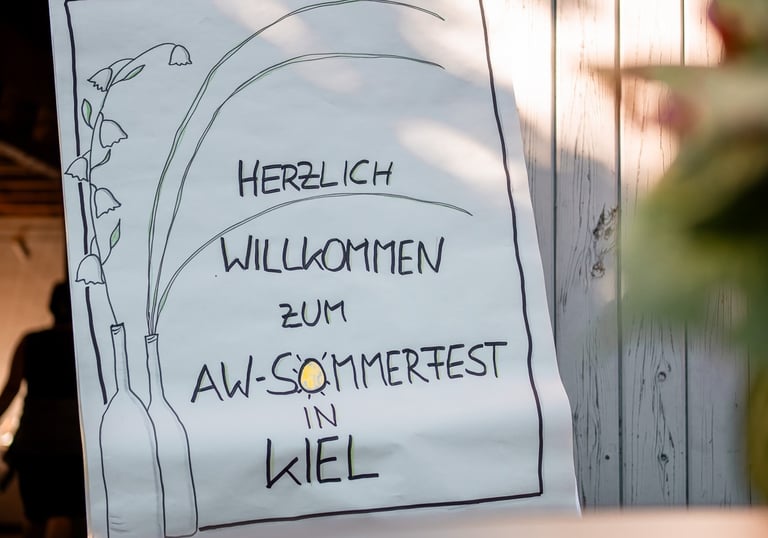 HERZLICH
WILLKOMMEN
ZUM
AW-SOMMERFEST
IN
KIEL